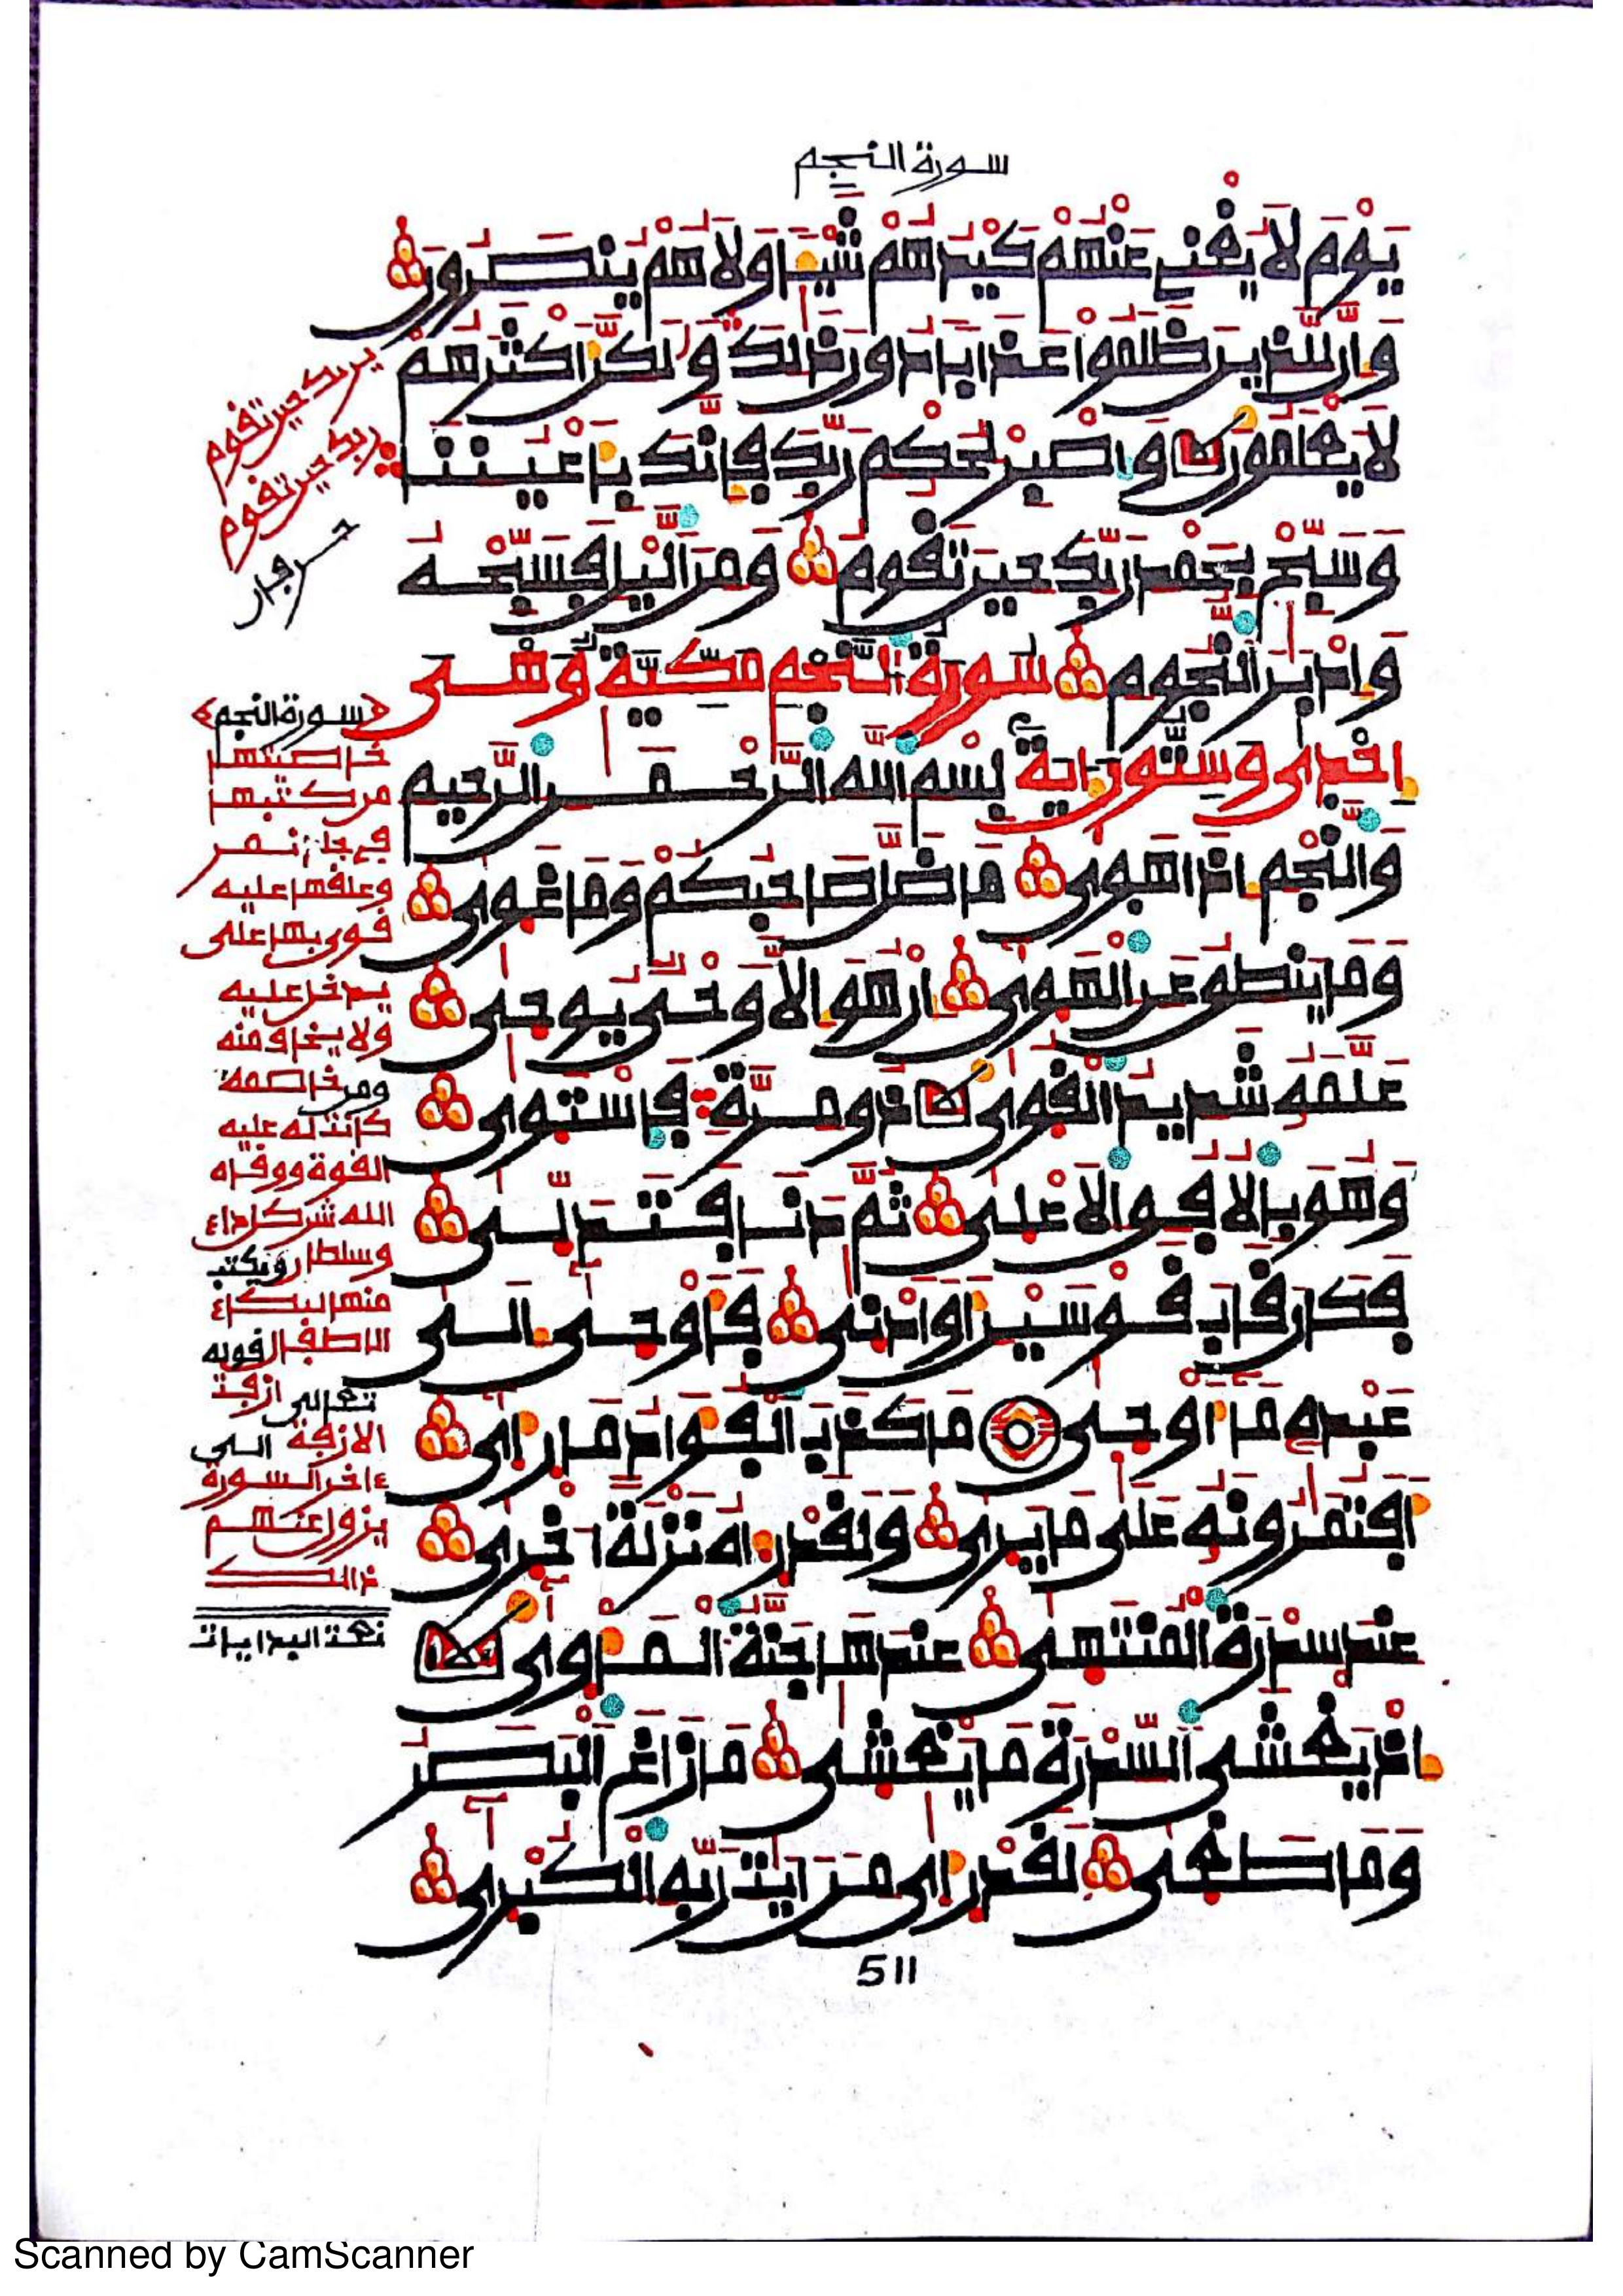 سورة النجم
يَوْمَ لَا يُغْنِي عَنْهُمْ كَيْدُهُمْ شَيْـًٔا وَلَا هُمْ يُنصَرُونَ
وَإِنَّ لِلذِينَ ظَلَمُوا عَذَابًا دُونَ ذَٰلِكَ وَلَٰكِنَّ أَكْثَرَهُمْ
لَا يَعْلَمُونَ وَاصْبِرْ لِحُكْمِ رَبِّكَ فَإِنَّكَ بِأَعْيُنِنَا
وَسَبِّحْ بِحَمْدِ رَبِّكَ حِينَ تَقُومُ وَمِنَ اللَّيْلِ فَسَبِّحْهُ
وَإِدْبَٰرَ النُّجُومِ سورة النجم مكية وهى
إحدى وستون ءاية بِسْمِ اللَّهِ الرَّحْمَٰنِ الرَّحِيمِ
وَالنَّجْمِ إِذَا هَوَىٰ مَا ضَلَّ صَاحِبُكُمْ وَمَا غَوَىٰ
وَمَا يَنطِقُ عَنِ الْهَوَىٰ إِنْ هُوَ إِلَّا وَحْيٌ يُوحَىٰ
عَلَّمَهُ شَدِيدُ الْقُوَىٰ ذُو مِرَّةٍ فَاسْتَوَىٰ
وَهُوَ بِالْأُفُقِ الْأَعْلَىٰ ثُمَّ دَنَا فَتَدَلَّىٰ
فَكَانَ قَابَ قَوْسَيْنِ أَوْ أَدْنَىٰ فَأَوْحَىٰ إِلَىٰ
عَبْدِهِ مَا أَوْحَىٰ مَا كَذَبَ الْفُؤَادُ مَا رَأَىٰ
أَفَتُمَٰرُونَهُ عَلَىٰ مَا يَرَىٰ وَلَقَدْ رَءَاهُ نَزْلَةً أُخْرَىٰ
عِندَ سِدْرَةِ الْمُنتَهَىٰ عِندَهَا جَنَّةُ الْمَأْوَىٰ
إِذْ يَغْشَى السِّدْرَةَ مَا يَغْشَىٰ مَا زَاغَ الْبَصَرُ
وَمَا طَغَىٰ لَقَدْ رَأَىٰ مِنْ ءَايَٰتِ رَبِّهِ الْكُبْرَىٰ
ربك حين تقوم
ربك حين تقوم
سورة النجم
خاصيتها
من كتبها
في جلد نمر
وعلقها عليه
قوى بها على
يدخل عليه
ولا يخاف منه
ومن خاصمه
كانت له عليه
القوة ووقاه
الله شر كل داء
وسلطان ويكتب
منها لبكاء
الاطفال قوله
تعالى ازفت
الازفة الى
ءاخر السورة
يزول عنهم
ذالك
511
Scanned by CamScanner